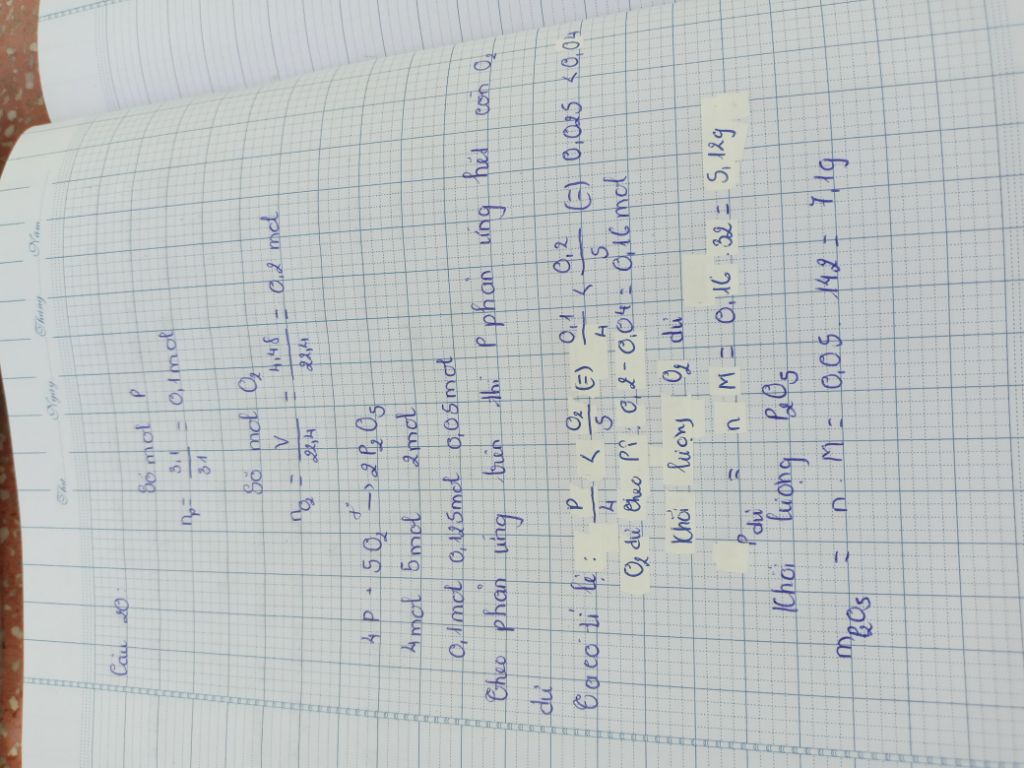 Thứ Ngày Tháng Năm
Câu 20:
Số mol P
nP = 3,1/31 = 0,1 mol
Số mol O2
nO2 = V/22,4 = 4,48/22,4 = 0,2 mol
4P + 5O2 t° → 2P2O5
4mol 5mol 2mol
0,1mol 0,125mol 0,05mol
Theo phản ứng trên thì P phản ứng hết còn O2
dư
Ta có tỉ lệ: P/4 < O2/5 (=) 0,1/4 < 0,2/5 (=) 0,025 < 0,04
O2 dư theo Pì: 0,2 - 0,04 = 0,16 mol
Khối lượng O2 dư
Pdư = n . M = 0,16 . 32 = 5,12g
Khối lượng P2O5
mP2O5 = n . M = 0,05 . 142 = 7,1g